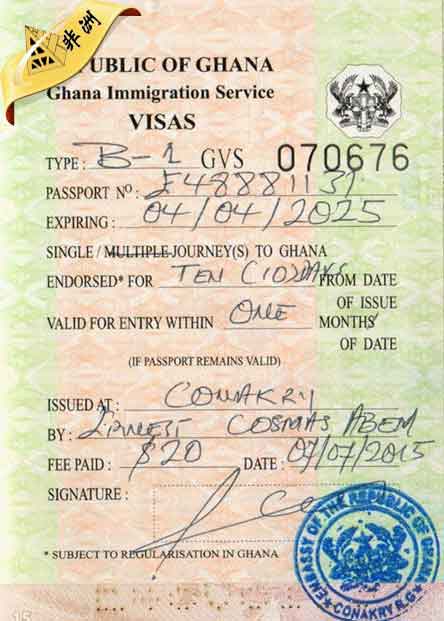 非洲
PUBLIC OF GHANA
Ghana Immigration Service
VISAS
TYPE: B-1 GVS 070676
PASSPORT Nº: E48881131
EXPIRING: 04/04/2025
SINGLE / MULTIPLE JOURNEY(S) TO GHANA
ENDORSED* FOR TEN (10) DAYS FROM DATE
OF ISSUE
VALID FOR ENTRY WITHIN ONE MONTHS
OF DATE
(IF PASSPORT REMAINS VALID)
ISSUED AT: CONAKRY
BY: COSMAS ABEM
FEE PAID: $20 DATE: 07/07/2015
SIGNATURE:
* SUBJECT TO REGULARISATION IN GHANA
EMBASSY OF THE REPUBLIC OF GHANA
CONAKRY R.G
15